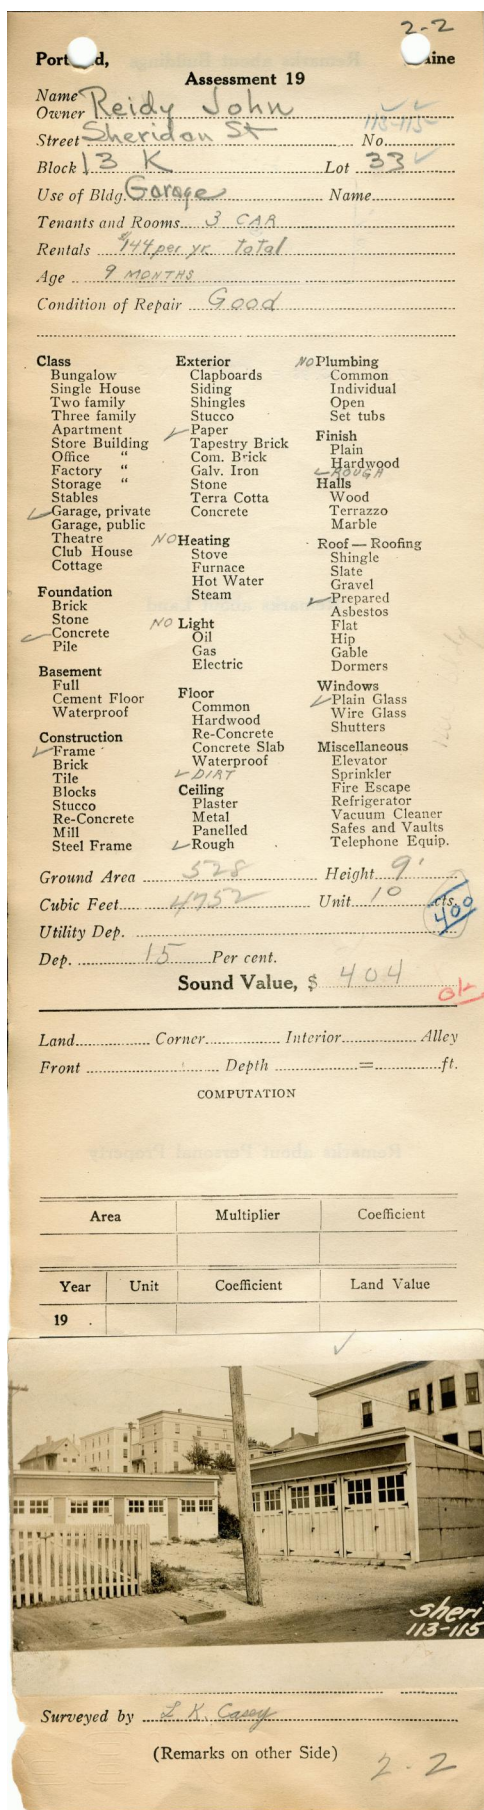 2-2
Portland, Maine
Assessment 19
Name
Owner Reidy John
Street Sheridan St No. 113-115
Block 13 K Lot 33
Use of Bldg. Garage Name
Tenants and Rooms 3 CAR
Rentals $144 per yr. Total
Age 9 MONTHS
Condition of Repair Good
Class
Bungalow
Single House
Two family
Three family
Apartment
Store Building
Office "
Factory "
Storage "
Stables
Garage, private
Garage, public
Theatre
Club House
Cottage
Foundation
Brick
Stone
Concrete
Pile
Basement
Full
Cement Floor
Waterproof
Construction
Frame
Brick
Tile
Blocks
Stucco
Re-Concrete
Mill
Steel Frame
Exterior
Clapboards
Siding
Shingles
Stucco
Paper
Tapestry Brick
Com. Brick
Galv. Iron
Stone
Terra Cotta
Concrete
NO Heating
Stove
Furnace
Hot Water
Steam
NO Light
Oil
Gas
Electric
Floor
Common
Hardwood
Re-Concrete
Concrete Slab
Waterproof
DIRT
Ceiling
Plaster
Metal
Panelled
Rough
NO Plumbing
Common
Individual
Open
Set tubs
Finish
Plain
Hardwood
ROUGH
Halls
Wood
Terrazzo
Marble
Roof — Roofing
Shingle
Slate
Gravel
Prepared
Asbestos
Flat
Hip
Gable
Dormers
Windows
Plain Glass
Wire Glass
Shutters
Miscellaneous
Elevator
Sprinkler
Fire Escape
Refrigerator
Vacuum Cleaner
Safes and Vaults
Telephone Equip.
Ground Area 528 Height 9'
Cubic Feet 4752 Unit 10 cts.
400
Utility Dep.
Dep. 15 Per cent.
Sound Value, $ 404
OK
Land Corner Interior Alley
Front Depth = ft.
COMPUTATION
Area Multiplier Coefficient
Year Unit Coefficient Land Value
19
Sheri
113-115
Surveyed by L. K. Casey
(Remarks on other Side)
2-2